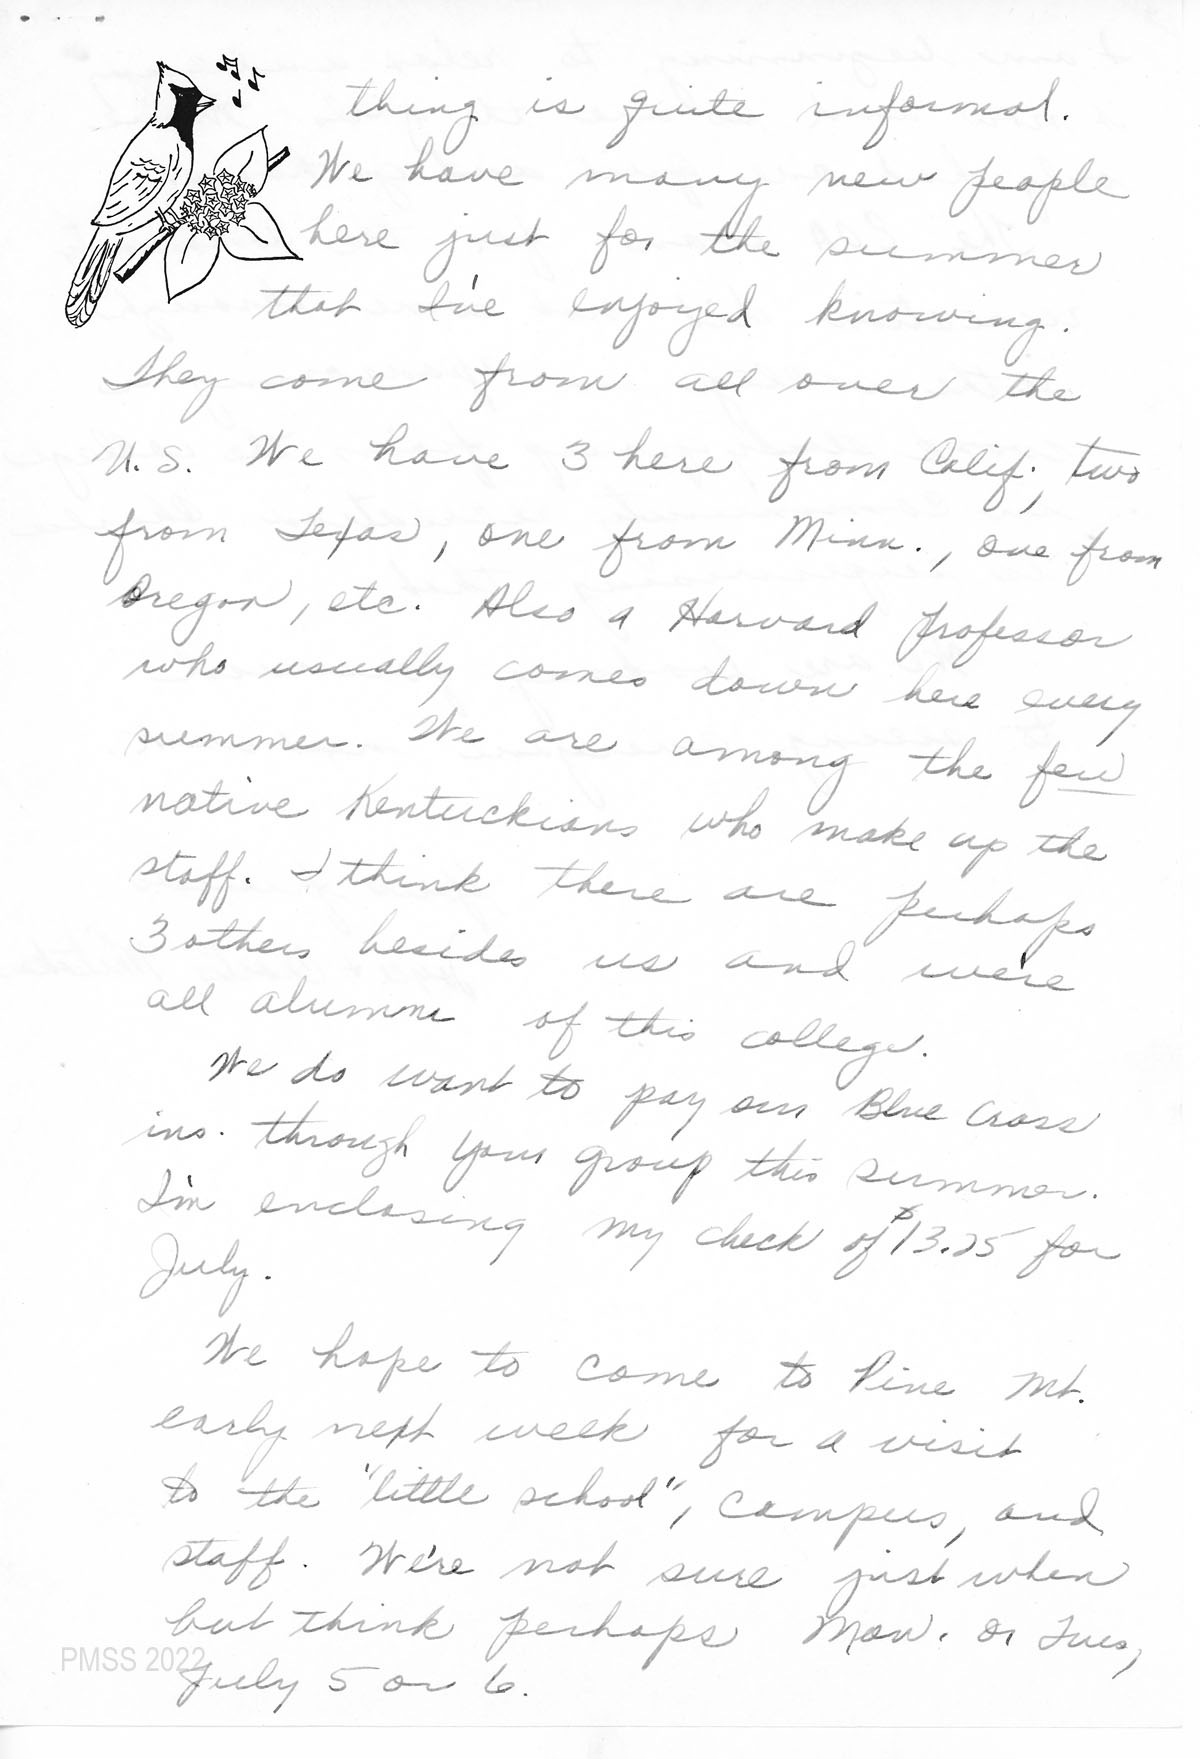 thing is quite informal.
We have many new people
here just for the summer
that I've enjoyed knowing.
They come from all over the
U.S. We have 3 here from Calif., two
from Texas, one from Minn., one from
Oregon, etc. Also a Harvard Professor
who usually comes down here every
summer. We are among the few
native Kentuckians who make up the
staff. I think there are perhaps
3 others besides us and we're
all alumni of this college.
We do want to pay our Blue Cross
ins. through your group this summer.
I'm enclosing my check of $13.25 for
July.
We hope to come to Pine Mt.
early next week for a visit
to the "little school", campus, and
staff. We're not sure just when
but think perhaps Mon. or Tues,
PMSS 2022
July 5 or 6.